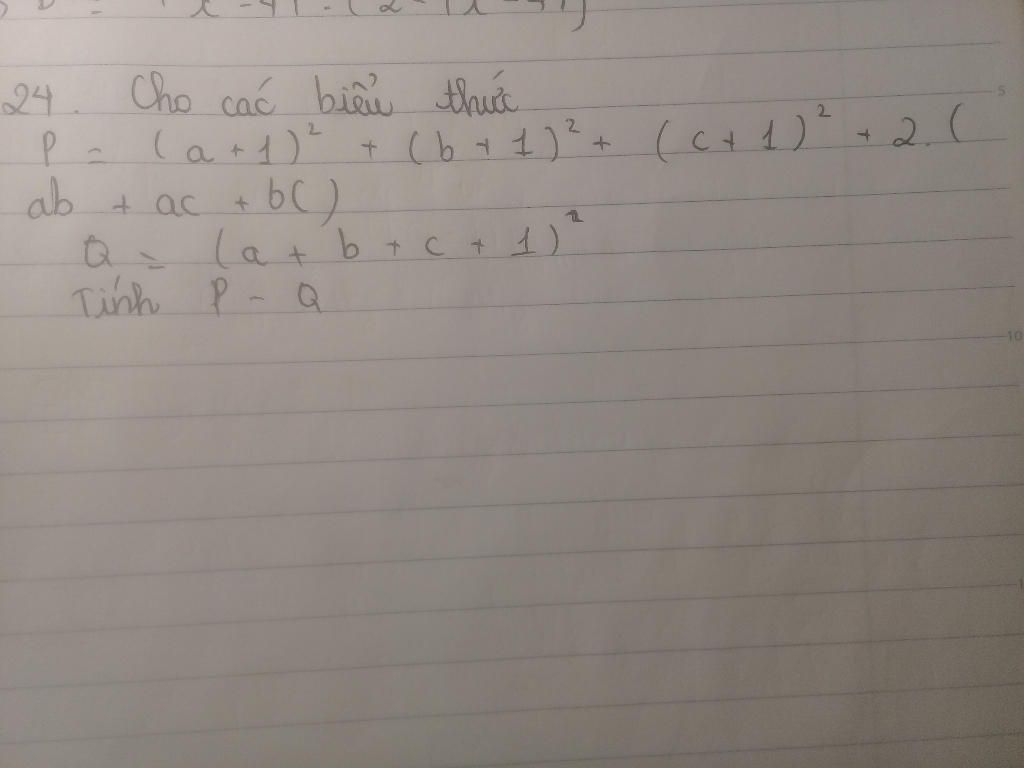 24. Cho các biểu thức
P = (a + 1)² + (b + 1)² + (c + 1)² + 2. (
ab + ac + bc)
Q = (a + b + c + 1)²
Tính P - Q
5
10